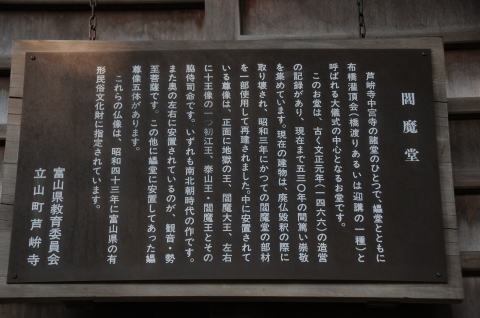 閻魔堂
芦峅寺中宮寺の諸堂のひとつで、媼堂とともに
布橋灌頂会(橋渡りあるいは迎講の一種)と
呼ばれる大儀式の中心となるお堂です。
このお堂は、古く文正元年(一四六六)の造営
の記録があり、現在まで五三〇年の間篤い崇敬
を集めています。現在の建物は、廃仏毀釈の際に
取り壊され、昭和三年にかつての閻魔堂の部材
を一部使用して再建されました。中に安置されて
いる尊像は、正面に地獄の王、閻魔大王、左右
に十王像の一つ初江王、泰山王・閻魔王とその
脇侍司命です。いずれも南北朝時代の作です。
また奥の左右に安置されているのが、観音・勢
至菩薩です。この他に媼堂に安置してあった媼
尊像五体があります。
これらの仏像は、昭和四十三年に富山県の有
形民俗文化財に指定されています。
富山県教育委員会
立山町芦峅寺